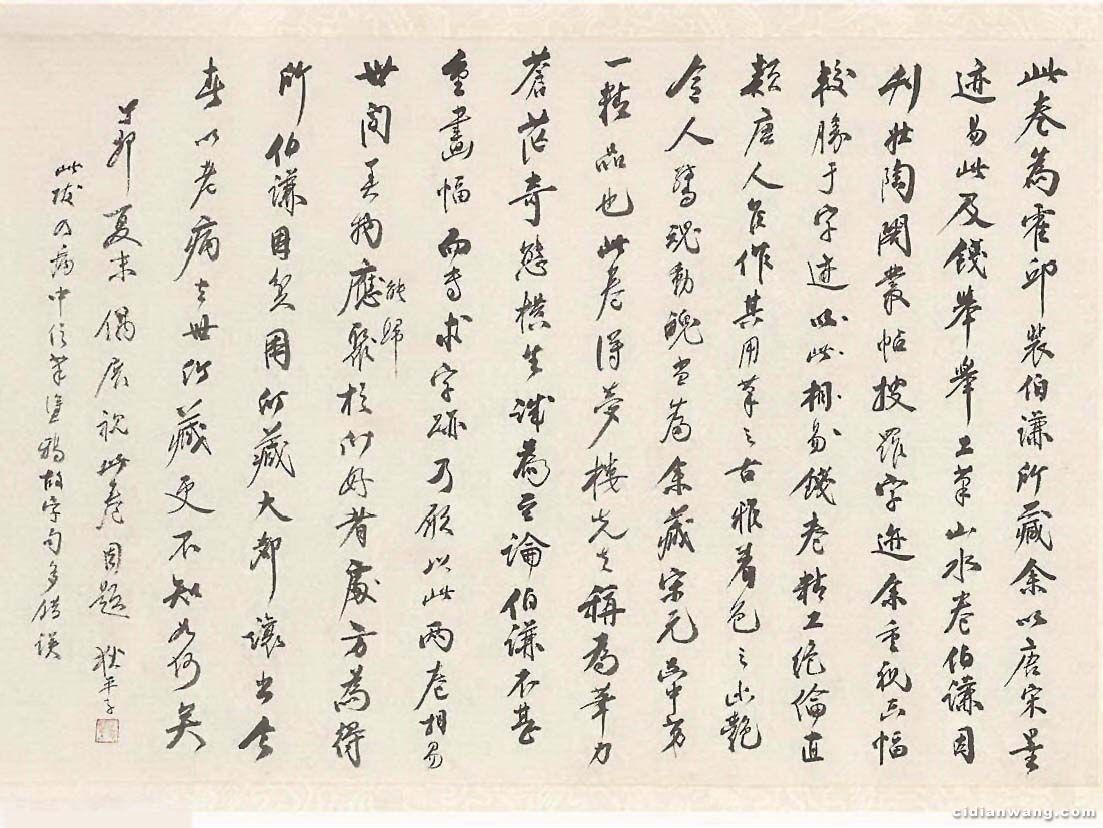 此卷為霍邱裴伯謙所藏余以唐宋墨
迹易此及錢舉舉工筆山水卷伯謙因
刊壯陶閣叢帖搜羅字迹余重視畫幅
較勝于字迹以此相易錢卷精工絕倫直
類唐人名作其用筆之古雅着色之幽艷
令人驚魂動魄當為余藏宋元畫中第
一精品也此卷得夢樓先生稱為筆力
蒼茫奇態橫生誠為至論伯謙不甚
重畫幅而專求字跡乃願以此兩卷相易
世間美物應聚於所好者處方為得
能歸
所伯謙因貧困所藏大都讓出今
春以老病去世所藏更不知如何矣
丁卯夏末偶展視此卷因題 狄平子
此跋乃病中信筆塗鴉故字句多錯誤
cidianwang.com